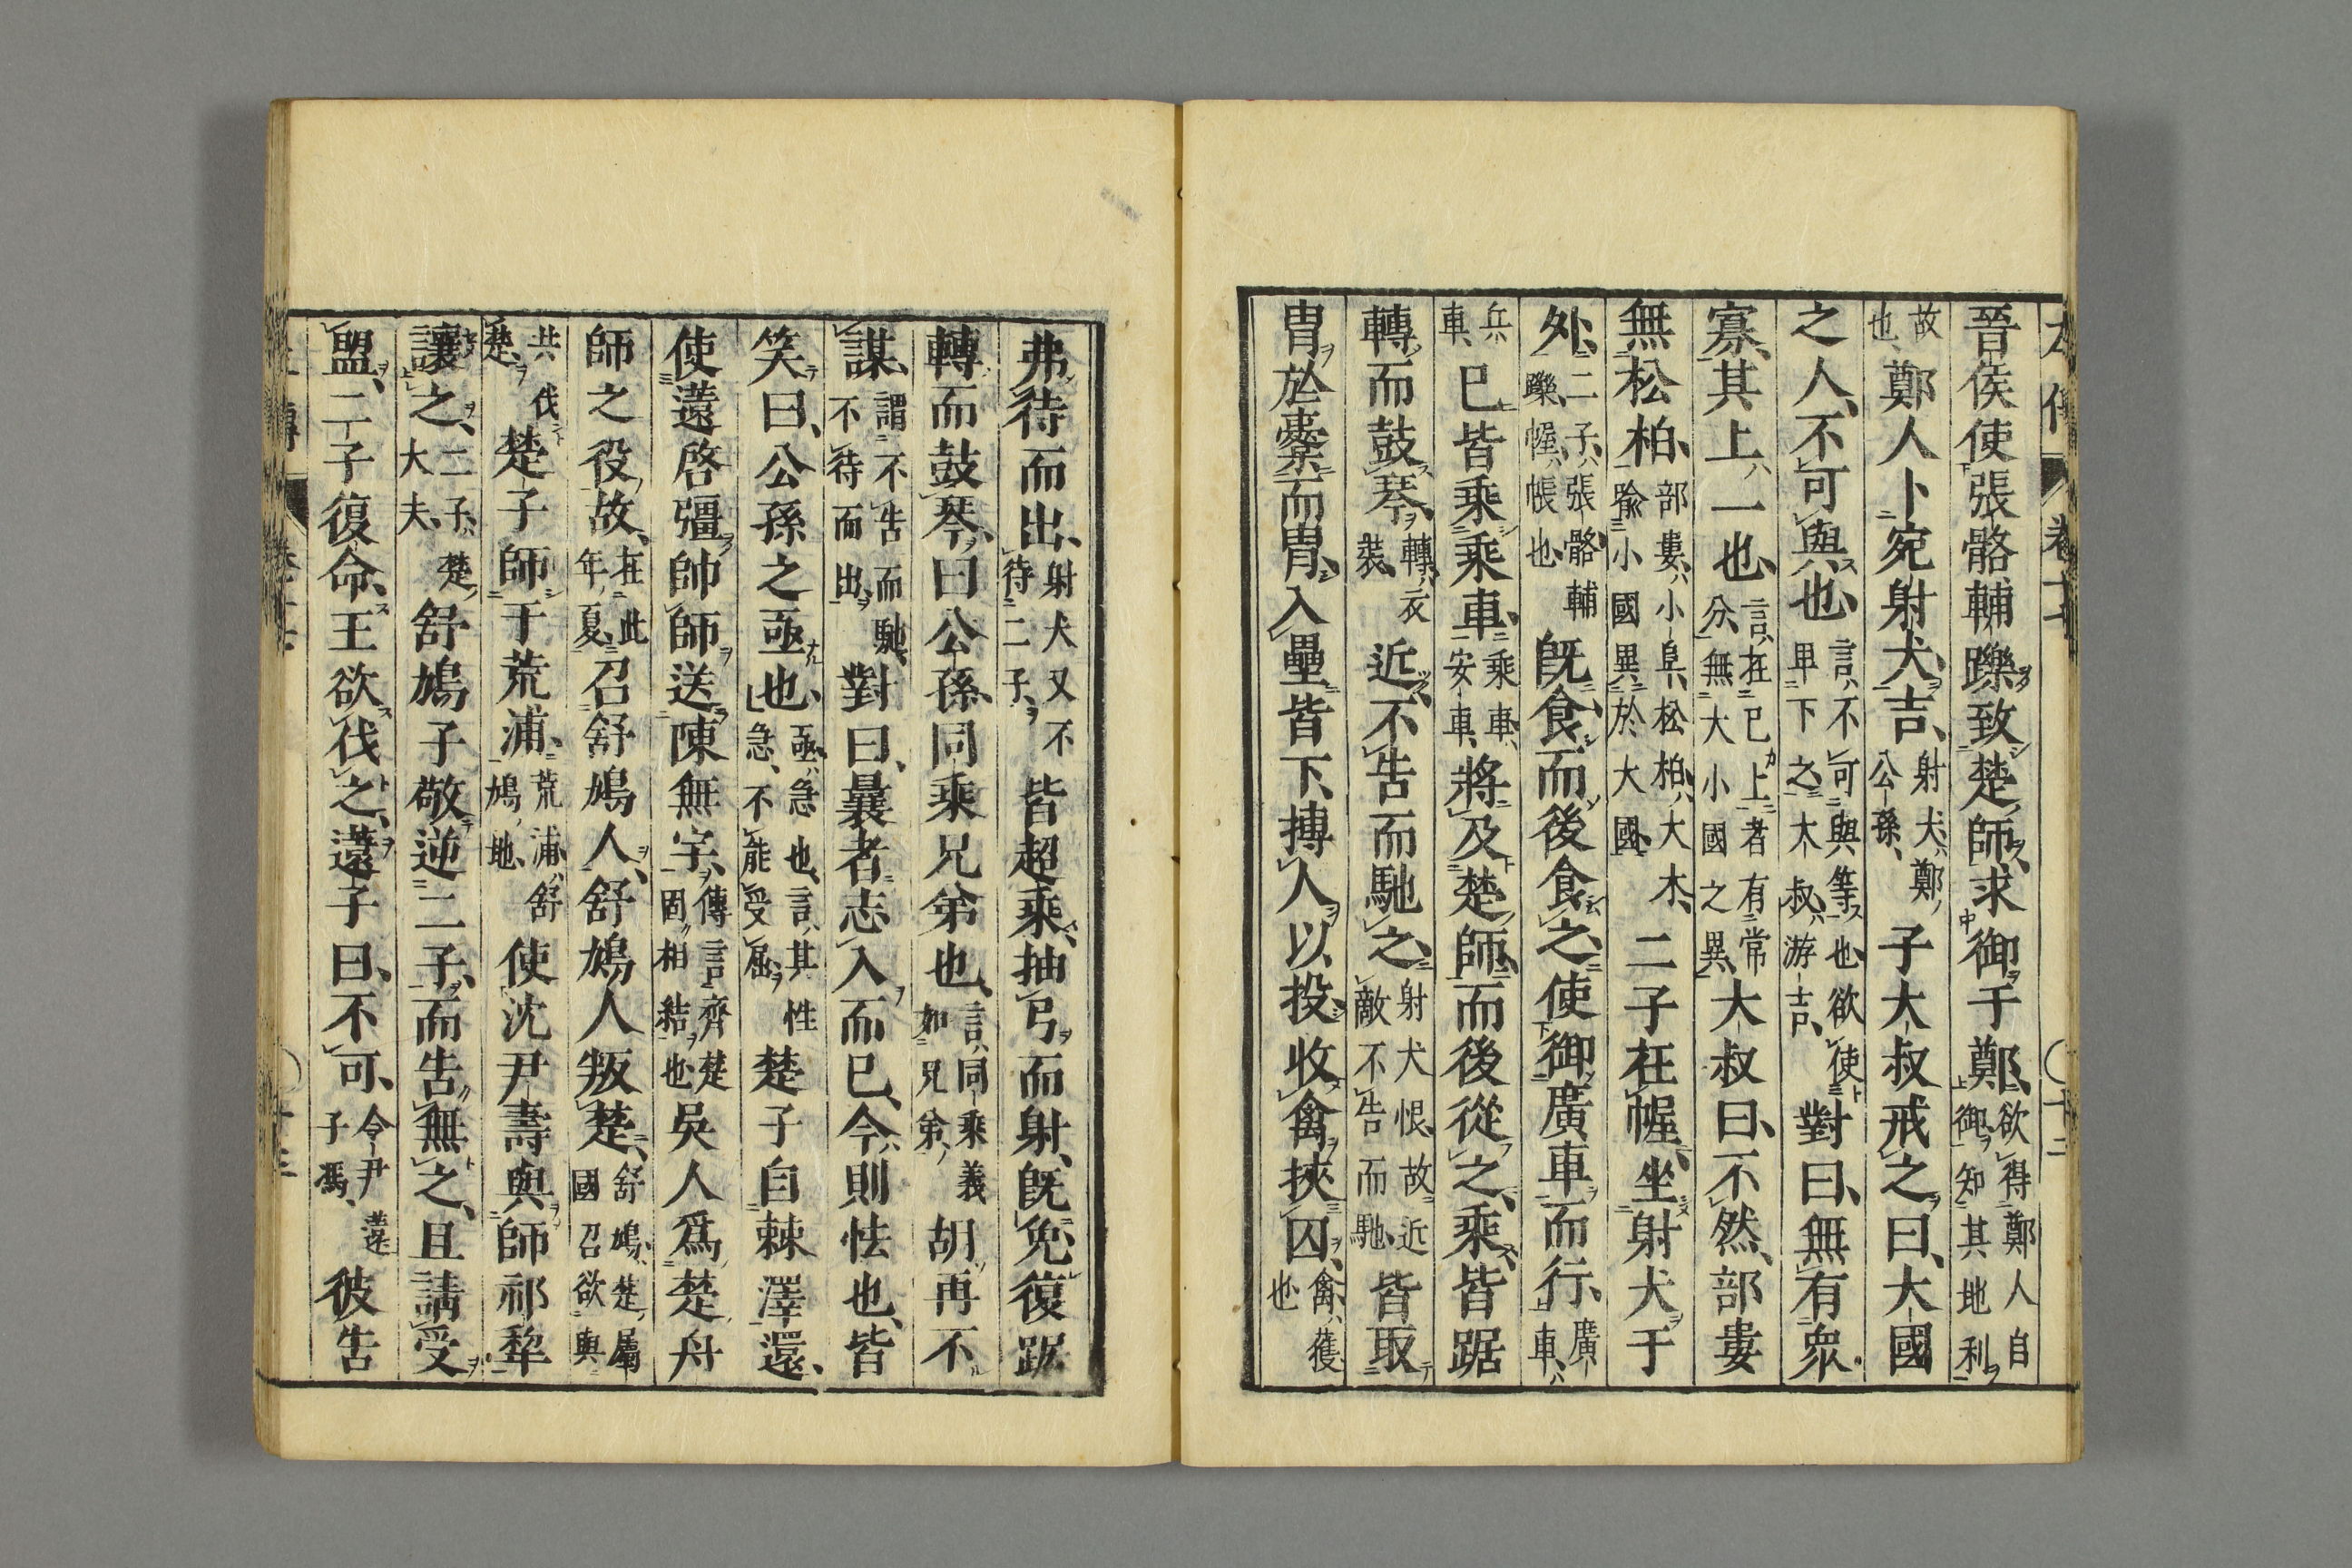 晉侯使張骼輔躒致楚師、求御于鄭、欲得鄭人自御、知其地利
故也、鄭人卜宛射犬、吉、射犬、鄭公孫、子大叔戒之曰、大國
之人、不可與也、言不可與等也、欲使卑下之、大叔、游吉、對曰、無有衆
寡、其上一也、言在己上者有常分、無大小國之異、大叔曰、不然、部婁
無松柏、部婁、小阜、松柏、大木、喻小國異於大國、二子在幄、坐射犬于
外、二子、張骼輔躒、幄、帳也、旣食、而後食之、使御廣車而行、廣車、
兵車、已皆乘乘車、乘車、安車、將及楚師、而後從之、乘、皆踞
轉而鼓琴、轉、衣裝、近、不告而馳之、射犬恨、故近敵不告而馳、皆取
冑於櫜而冑、入壘皆下、搏人以投、收禽挾囚、禽、獲也、
弗待而出、射犬又不待二子、皆超乘、抽弓而射、旣免、復踞
轉而鼓琴、曰、公孫、同乘兄弟也、言同乘義如兄弟、胡再不
謀、謂不告而馳、不待而出、對曰、曩者志入而已、今則怯也、皆
笑曰、公孫之亟也、亟、急也、言其性急、不能受屈、楚子自棘澤還、
使薳啓彊帥師送陳無宇、傳言齊楚固相結也、吳人爲楚舟
師之役故、在此年夏、召舒鳩人、舒鳩人叛楚、舒鳩、楚屬國、召欲與
共伐楚、楚子師于荒浦、荒浦、舒鳩地、使沈尹壽與師祁犂
讓之、二子、楚大夫、舒鳩子敬逆二子、而告無之、且請受
盟、二子復命、王欲伐之、薳子曰、不可、令尹薳子馮、彼告